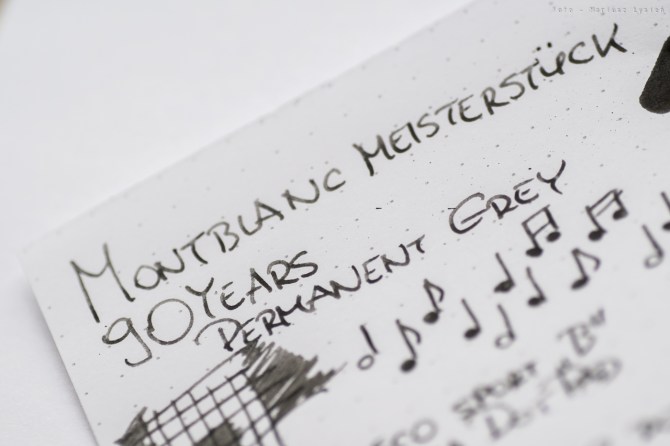 Foto - Mariusz Lysien
MONTBLANC MEISTERSTÜCK
90 YEARS
PERMANENT GREY
ECO SPORT "B"
DOT PAD